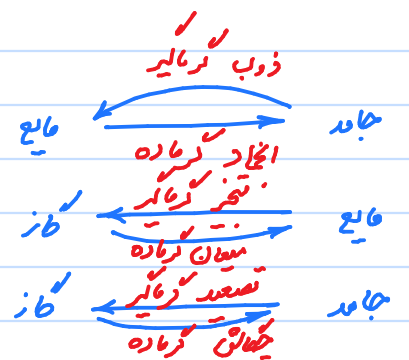 ذوب گرماگیر
جامد مایع
انجماد گرماده
تبخیر گرماگیر
مایع گاز
میعان گرماده
تصعید گرماگیر
جامد گاز
چگالش گرماده